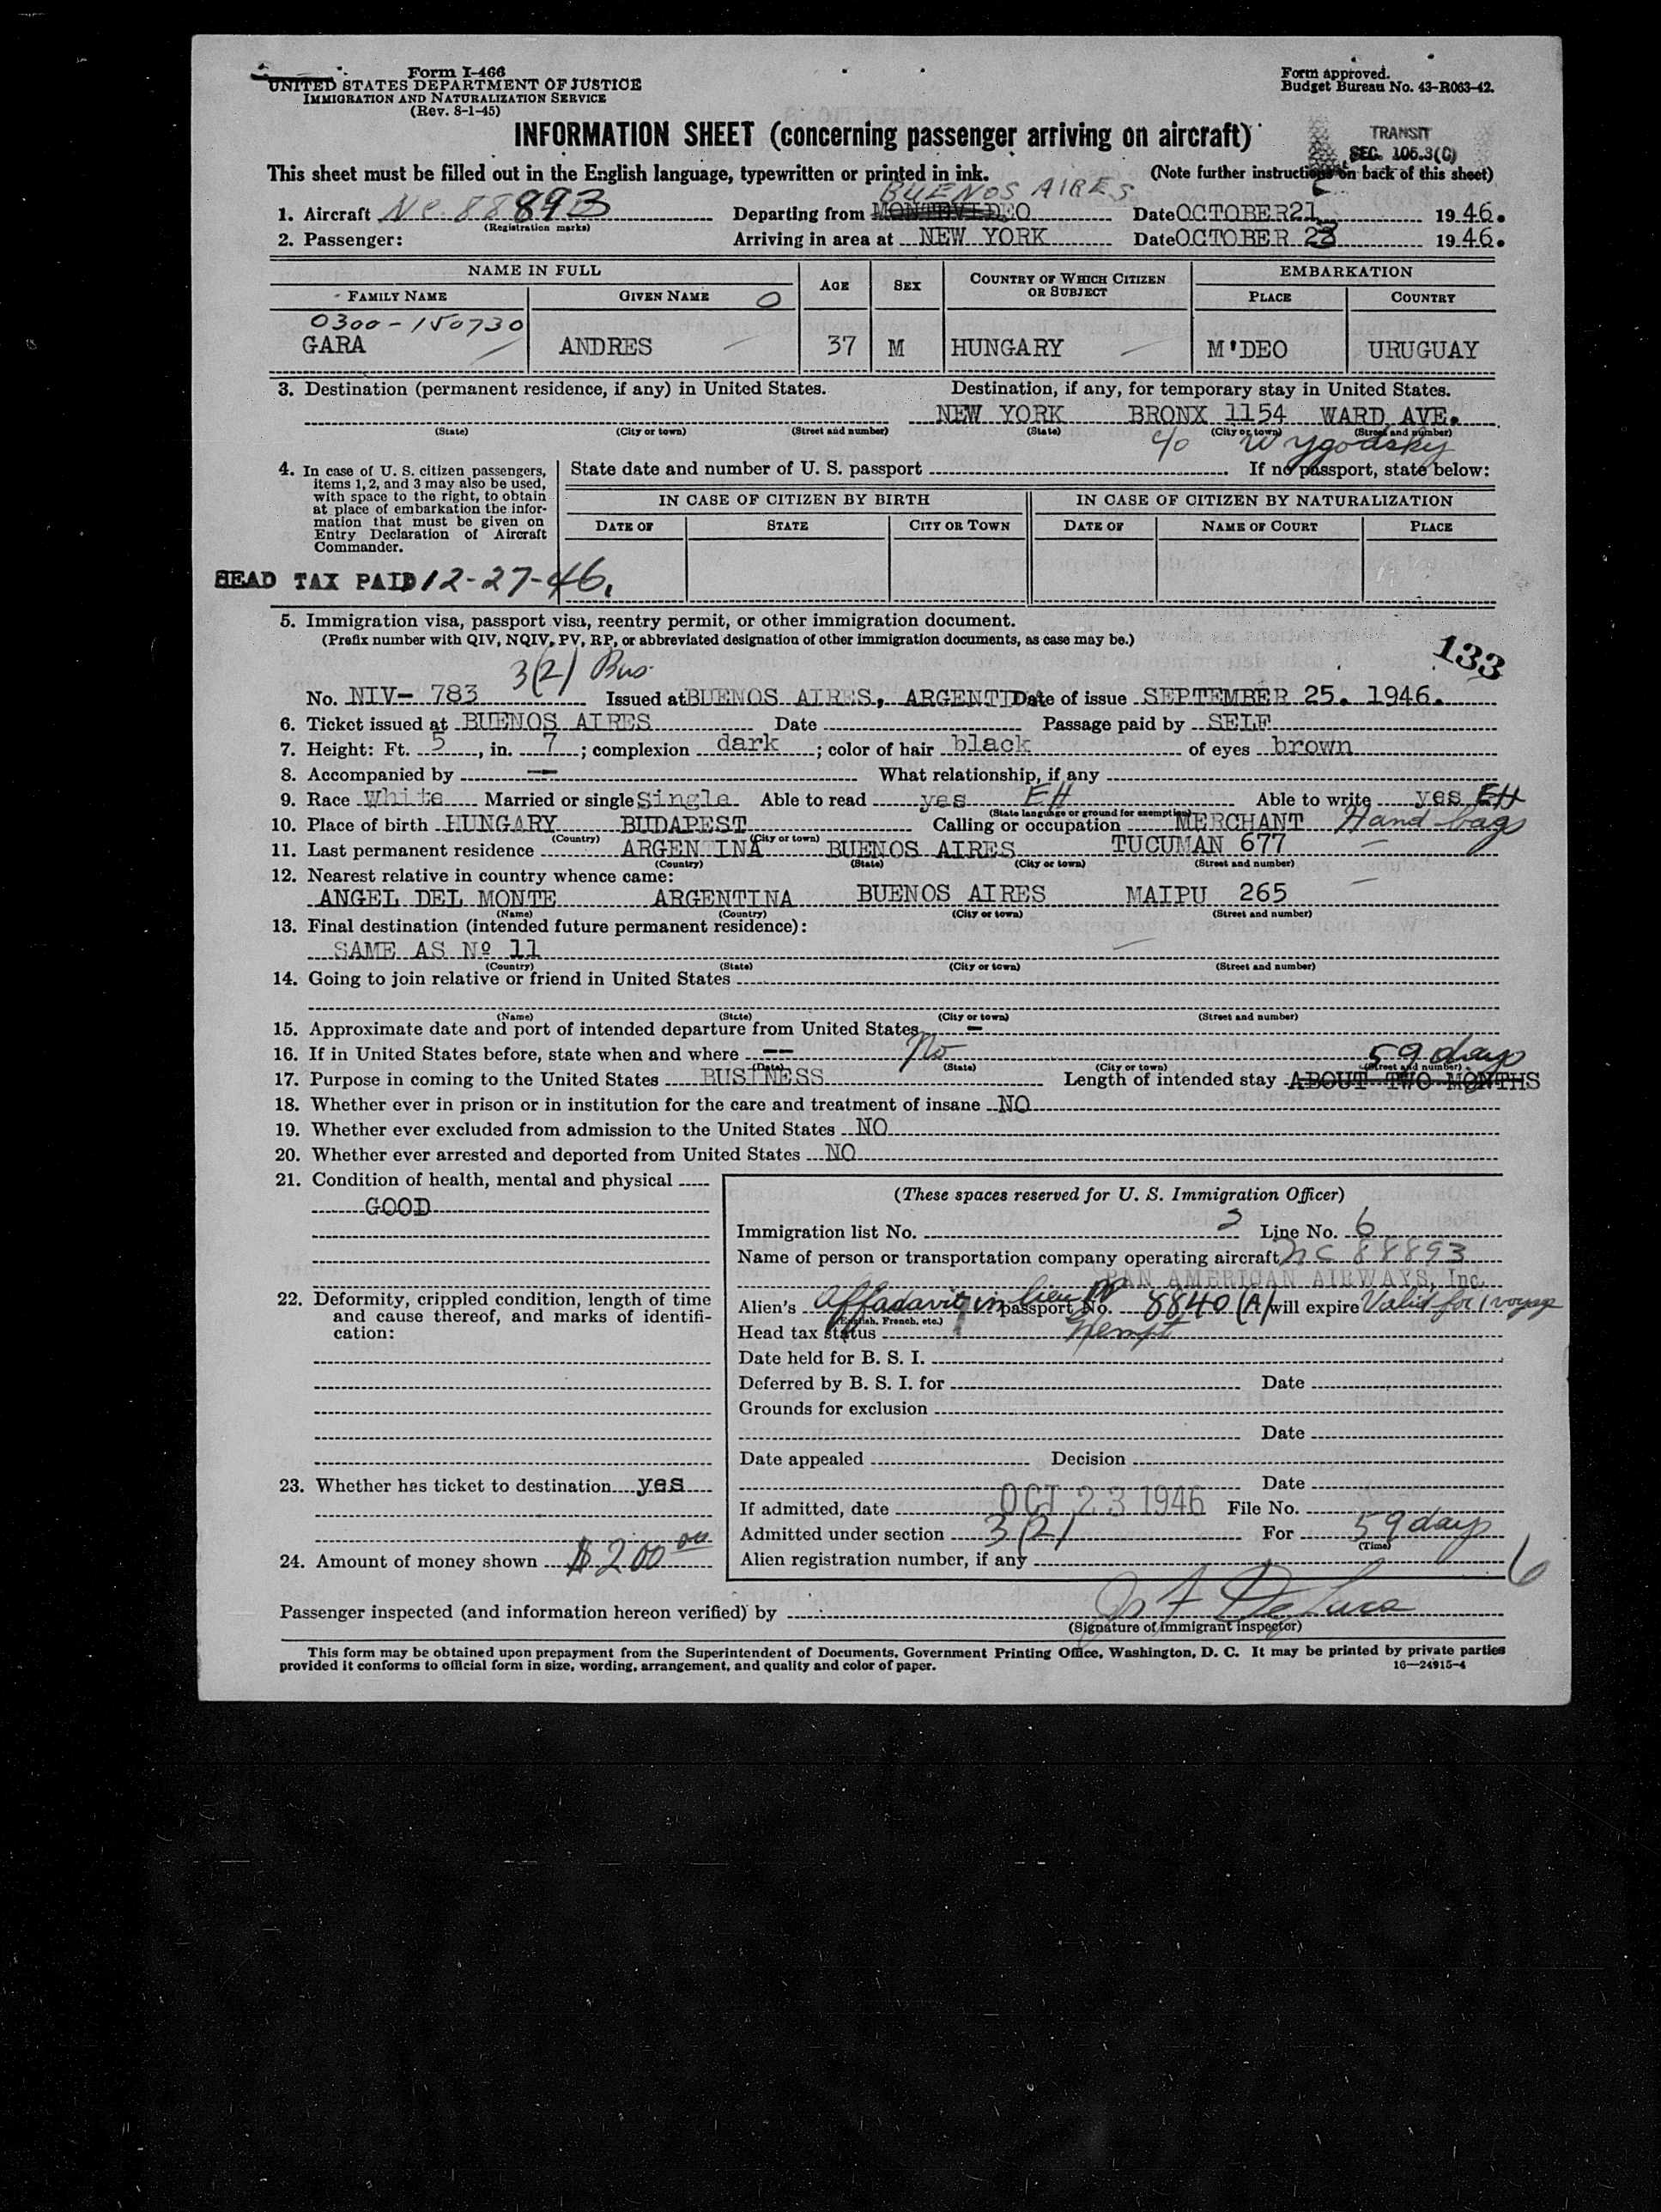 Form I-466
UNITED STATES DEPARTMENT OF JUSTICE
IMMIGRATION AND NATURALIZATION SERVICE
(Rev. 8-1-45)
Form approved.
Budget Bureau No. 43-R063-42.
INFORMATION SHEET (concerning passenger arriving on aircraft)
TRANSIT
SEC. 105.3(C)
This sheet must be filled out in the English language, typewritten or printed in ink. (Note further instructions on back of this sheet)
BUENOS AIRES
1. Aircraft Nc. 88893 Departing from MONTEVIDEO Date OCTOBER 21 1946.
(Registration marks)
2. Passenger: Arriving in area at NEW YORK Date OCTOBER 23 1946.
NAME IN FULL AGE SEX COUNTRY OF WHICH CITIZEN OR SUBJECT EMBARKATION
FAMILY NAME GIVEN NAME O PLACE COUNTRY
0300-150730
GARA ANDRES 37 M HUNGARY M'DEO URUGUAY
3. Destination (permanent residence, if any) in United States. Destination, if any, for temporary stay in United States.
NEW YORK BRONX 1154 WARD AVE.
(State) (City or town) (Street and number) (State) (City or town) (Street and number)
c/o Wygodsky
4. In case of U. S. citizen passengers, items 1, 2, and 3 may also be used, with space to the right, to obtain at place of embarkation the information that must be given on Entry Declaration of Aircraft Commander.
State date and number of U. S. passport If no passport, state below:
IN CASE OF CITIZEN BY BIRTH IN CASE OF CITIZEN BY NATURALIZATION
DATE OF STATE CITY OR TOWN DATE OF NAME OF COURT PLACE
HEAD TAX PAID 12-27-46.
5. Immigration visa, passport visa, reentry permit, or other immigration document.
(Prefix number with QIV, NQIV, PV, RP, or abbreviated designation of other immigration documents, as case may be.)
133
3(2) Bus
No. NIV- 783 Issued at BUENOS AIRES, ARGENTI Date of issue SEPTEMBER 25. 1946.
6. Ticket issued at BUENOS AIRES Date Passage paid by SELF
7. Height: Ft. 5, in. 7; complexion dark; color of hair black of eyes brown
8. Accompanied by -- What relationship, if any
9. Race White Married or single Single Able to read yes EH Able to write yes EH
(State language or ground for exemption)
10. Place of birth HUNGARY BUDAPEST Calling or occupation MERCHANT Hand bags
(Country) (City or town)
11. Last permanent residence ARGENTINA BUENOS AIRES TUCUMAN 677
(Country) (State) (City or town) (Street and number)
12. Nearest relative in country whence came:
ANGEL DEL MONTE ARGENTINA BUENOS AIRES MAIPU 265
(Name) (Country) (City or town) (Street and number)
13. Final destination (intended future permanent residence):
SAME AS Nº 11
(Country) (State) (City or town) (Street and number)
14. Going to join relative or friend in United States
(Name) (State) (City or town) (Street and number)
15. Approximate date and port of intended departure from United States -
16. If in United States before, state when and where -- No
(Date) (State) (City or town) (Street and number)
59 days
17. Purpose in coming to the United States BUSINESS Length of intended stay ABOUT TWO MONTHS
18. Whether ever in prison or in institution for the care and treatment of insane NO
19. Whether ever excluded from admission to the United States NO
20. Whether ever arrested and deported from United States NO
21. Condition of health, mental and physical
GOOD
22. Deformity, crippled condition, length of time and cause thereof, and marks of identification:
23. Whether has ticket to destination yes
24. Amount of money shown $200 00
(These spaces reserved for U. S. Immigration Officer)
Immigration list No. 3 Line No. 6
Name of person or transportation company operating aircraft nc 88893
PAN AMERICAN AIRWAYS, Inc.
Alien's Affadavit in lieu of passport No. 8840 (A) will expire Valid for 1 voyage
(English, French, etc.)
Head tax status Exempt
Date held for B. S. I.
Deferred by B. S. I. for Date
Grounds for exclusion
Date
Date appealed Decision
Date
If admitted, date OCT 23 1946 File No.
Admitted under section 3(2) For 59 days
(Time)
Alien registration number, if any
6
Passenger inspected (and information hereon verified) by De Luca
(Signature of Immigrant Inspector)
This form may be obtained upon prepayment from the Superintendent of Documents, Government Printing Office, Washington, D. C. It may be printed by private parties
provided it conforms to official form in size, wording, arrangement, and quality and color of paper. 16—24915-4